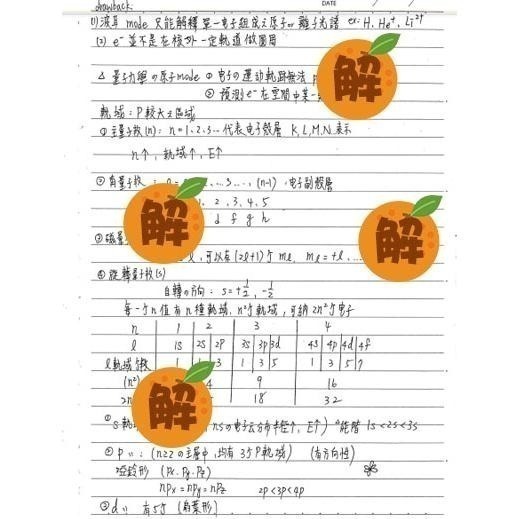 drawback:
DATE
(1) 波耳 mode 只能解釋單一电子組成之原子or離子光譜 ex: H, He⁺, Li²⁺
(2) e⁻並不是在核外一定軌道做圓周
解
△ 量子力學の原子mode ① 电子の運動軌跡無法
② 預測e⁻在空間中某一
軌域:P較大之區域
① 主量子數(n): n=1、2、3… 代表电子殼層 K, L, M, N 表示
n↑, 軌域↑, E↑
② 角量子數: …3…, (n-1), 电子副殼層
解
2、3、4、5
d f g h
解
③ 磁量
l, 可以有(2l+1)个 mℓ, mℓ = +l,…
④ 旋轉量子數(s)
自轉の方向: s=+½, -½
每一个n值有n種軌域, n²个軌域, 可納2n²个电子
n 1 2 3 4
l 1s 2s 2p 3s 3p 3d 4s 4p 4d 4f
l軌域个數 1 1 3 1 3 5 1 3 5 7
(n²) 4 9 16
解
2n 18 32
① s軌 ns の电子云分布半徑个, E↑) 能階 1s<2s<3s
② p 〃: (n≥2 の主層中, 均有3个P軌域) (有方向性)
啞鈴形 (Px, Py, Pz)
npx = npy = npz 2p<3p<4p
③ d 〃 有5个